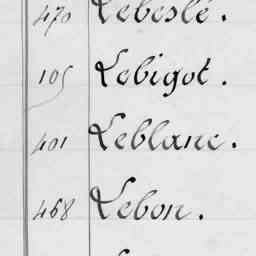 470 Lebeslé.
105 Lebigot.
401 Leblanc.
468 Lebon.